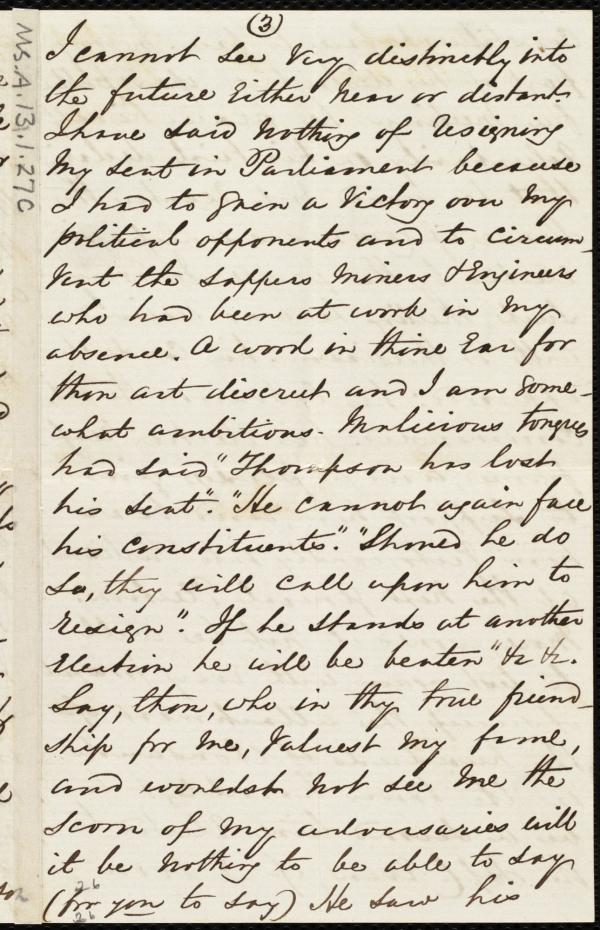 (3)
Ms.A.13.1.27C
I cannot see very distinctly into
the future either near or distant.
I have said nothing of resigning
my seat in Parliament because
I had to gain a victory over my
political opponents and to circum-
vent the sappers miners & Engineers
who had been at work in my
absence. A word in thine Ear for
thou art discreet and I am some-
what ambitious. Malicious tongues
had said "Thompson has lost
his seat". "He cannot again face
his constituents". "Should he do
so, they will call upon him to
resign". If he stands at another
Election he will be beaten" &c &c.
Say, thou, who in thy true friend-
ship for me, valuest my fame,
and wouldst not see me the
scorn of my adversaries will
it be nothing to be able to say
(for you to say) He saw his
26
26